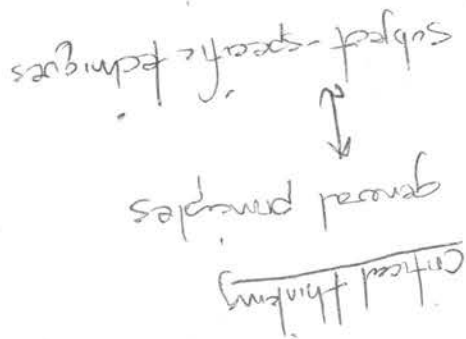 critical thinking
general principles
↕
subject-specific techniques